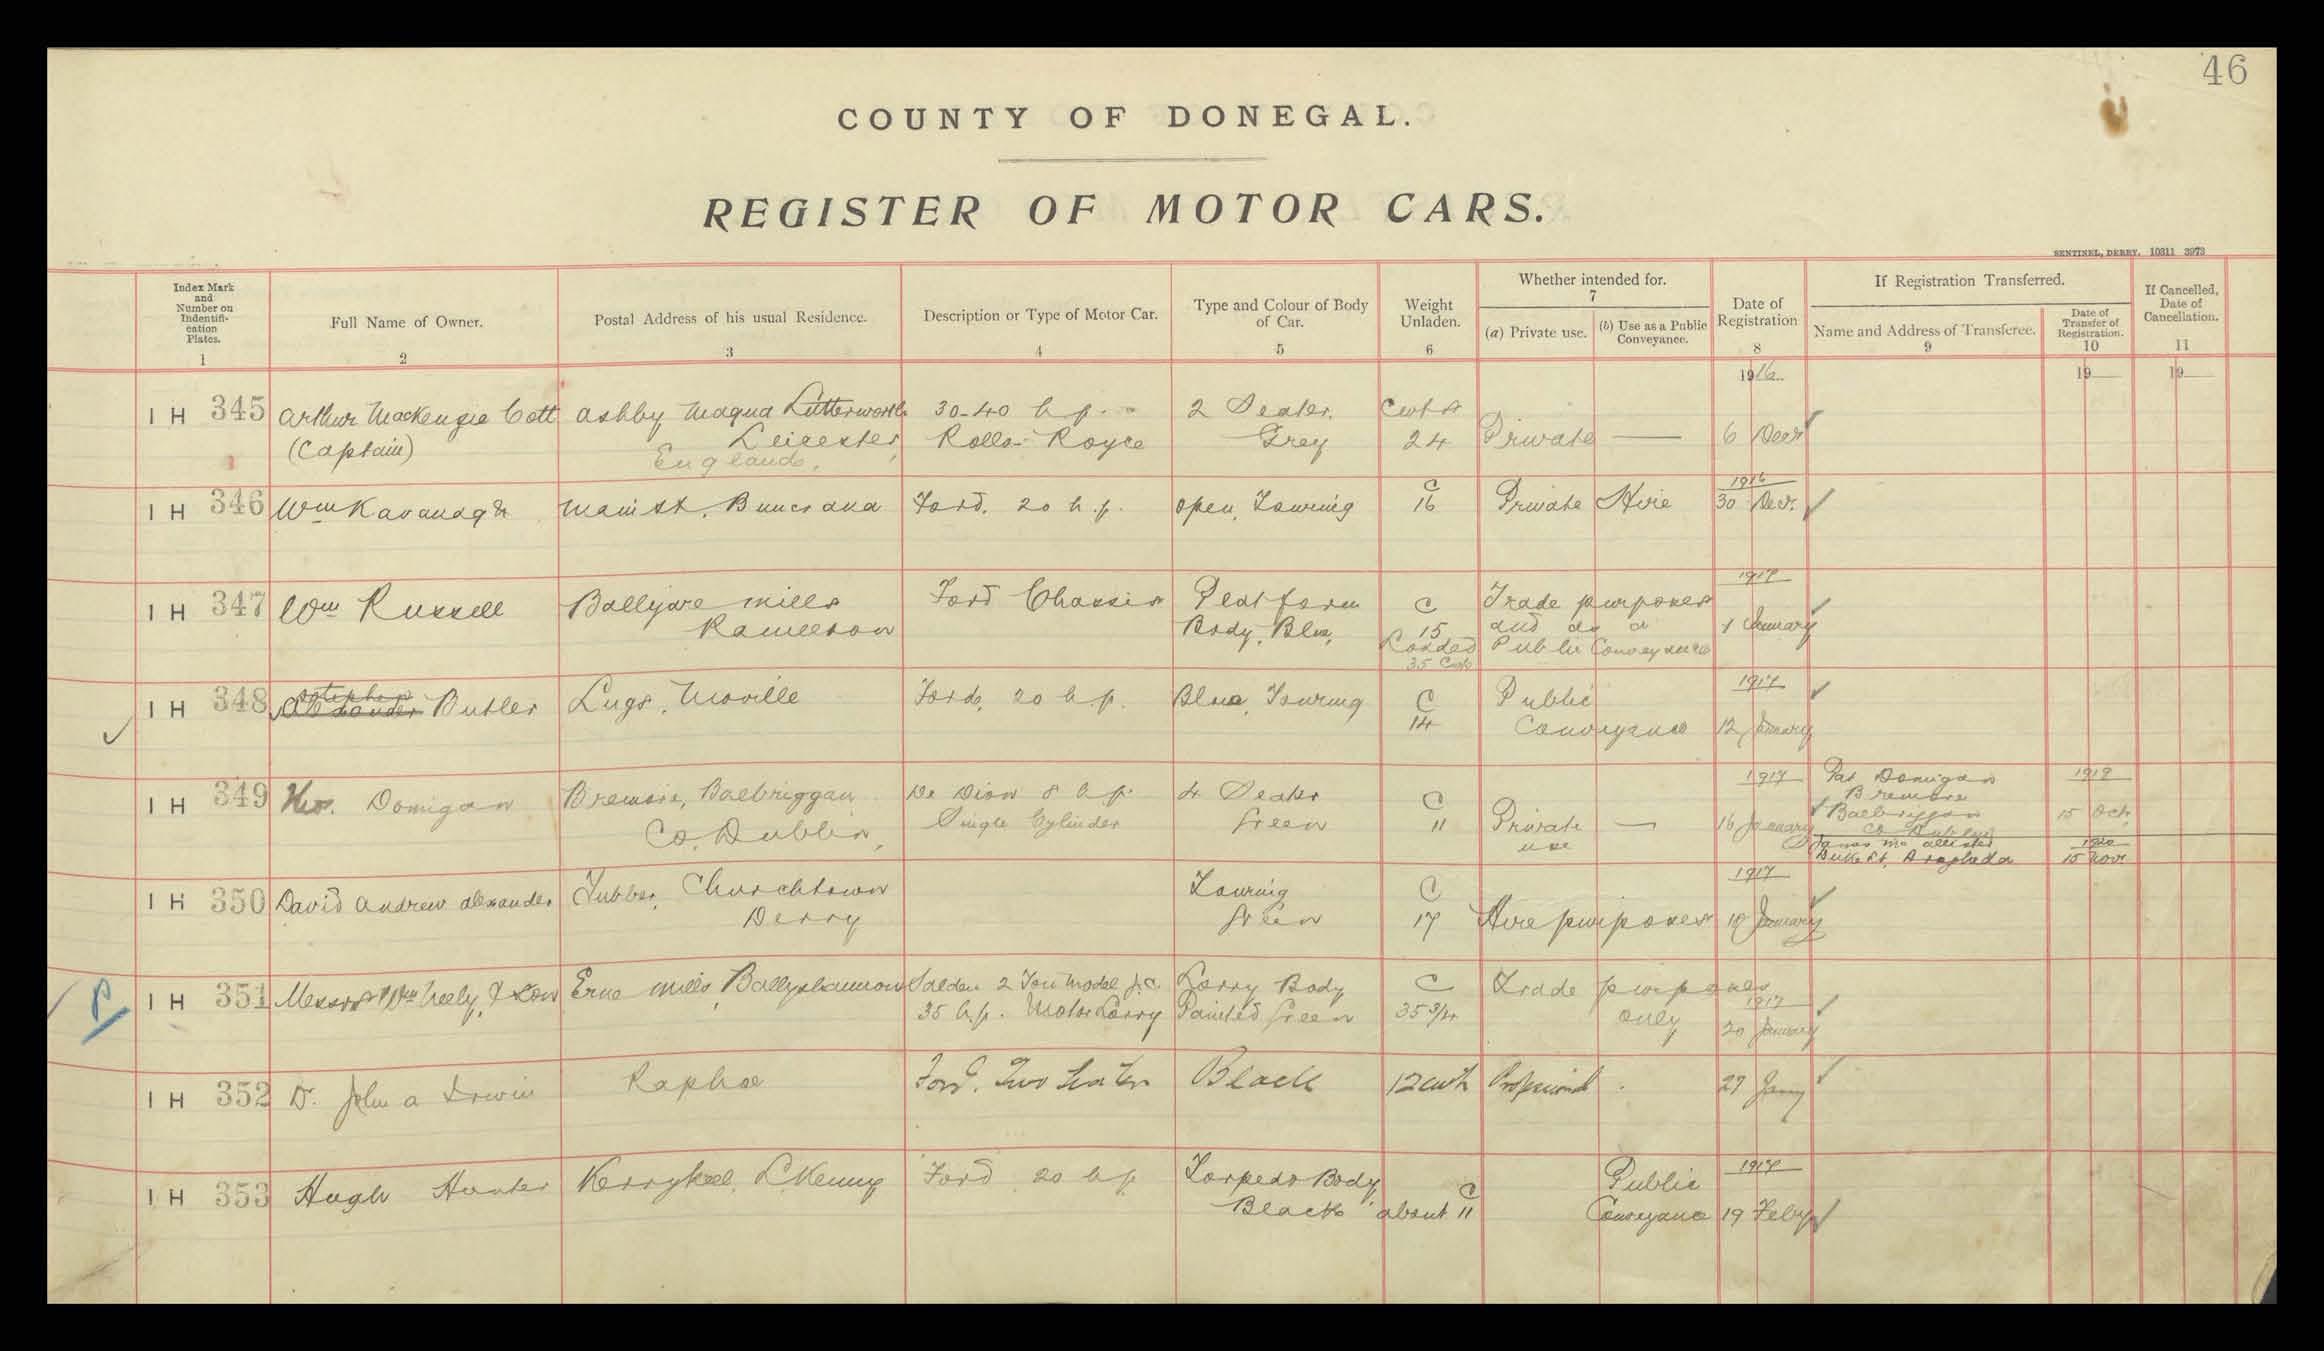 46
COUNTY OF DONEGAL.
REGISTER OF MOTOR CARS.
SENTINEL, DERRY. 10311 3973
Index Mark
and
Number on
Indentifi-
cation
Plates.
1
Full Name of Owner.
2
Postal Address of his usual Residence.
3
Description or Type of Motor Car.
4
Type and Colour of Body
of Car.
5
Weight
Unladen.
6
Whether intended for.
7
(a) Private use.
(b) Use as a Public
Conveyance.
Date of
Registration
8
If Registration Transferred.
Name and Address of Transferee.
9
Date of
Transfer of
Registration.
10
If Cancelled,
Date of
Cancellation.
11
1916
19
19
I H 345
Arthur Mackenzie Cott
(Captain)
Ashby Magna Lutterworth
Leicester,
England,
30-40 h.p.
Rolls-Royce
2 Seater.
Grey
Cwts
24
Private —
6 Decr
I H 346
Wm Kavanagh
Main St. Buncrana
Ford. 20 h.p.
Open, Touring
C
16
Private Hire
1916
30 Decr.
I H 347
Wm Russell
Ballyare Mills
Ramelton
Ford Chassis
Platform
Body, Blue,
C
15
Loaded
35 Cwts
Trade purposes
and as a
Public Conveyance
1917
1 January
I H 348
Stephen
Alexander Butler
Lugs, Moville
Ford, 20 h.p.
Blue, Touring
C
14
Public
Conveyance
1917
12 January
I H 349
Donigan
Bremore, Balbriggan
Co. Dublin,
De Dion 8 h.p.
Single Cylinder
4 Seater
Green
C
11
Private —
use
1917
16 January
Pat Donigan
Bremore
Balbriggan
Co Dublin
James McAllister
Duke St, Drogheda
1919
15 Oct,
1920
15 Novr
I H 350
David Andrew Alexander
Tubber, Churchtown
Derry
Touring
Green
C
17
Hire purposes
1917
18 January
I H 351
Messrs Wm Neely & Son
Erne Mills, Ballyshannon
Selden 2 Ton Model J.C.
35 h.p. Motor Lorry
Lorry Body
Painted Green
C
35 3/4
Trade purposes
only
1917
20 January
P
I H 352
Dr. John A Irwin
Raphoe
Ford. Two Seater
Black
12 cwts
Professional
27 Jany
I H 353
Hugh Hunter
Kerrykeel, L'Kenny
Ford 20 h.p.
Torpedo Body,
Black
C
about 11
Public
Conveyance
1917
19 Feby